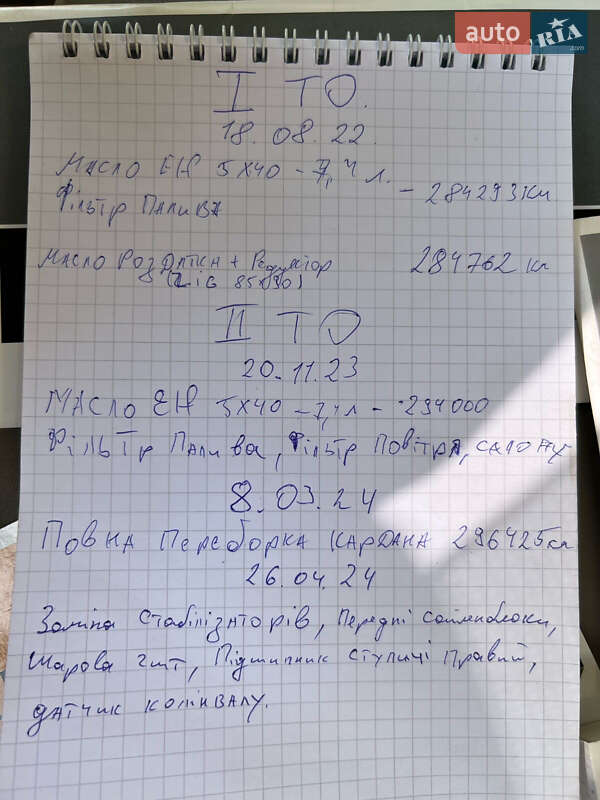 auto RIA.com
I ТО.
18.08.22.
Масло ЕН 5х40 - 7,4 л. - 284293 км
Фільтр Палива
Масло Роздатка + Редуктор 284762 км
85х90)
II ТО
20.11.23
Масло ЕН 5х40 - 7,4 л - 294000
Фільтр Палива, Фільтр Повітря, салону
8.03.24
Повна Переборка Кардана 296425 км
26.04.24
Заміна Стабілізаторів, Передні сайленблоки,
Шарова 2шт, Підшипник ступиці Правий,
датчик колінвалу.